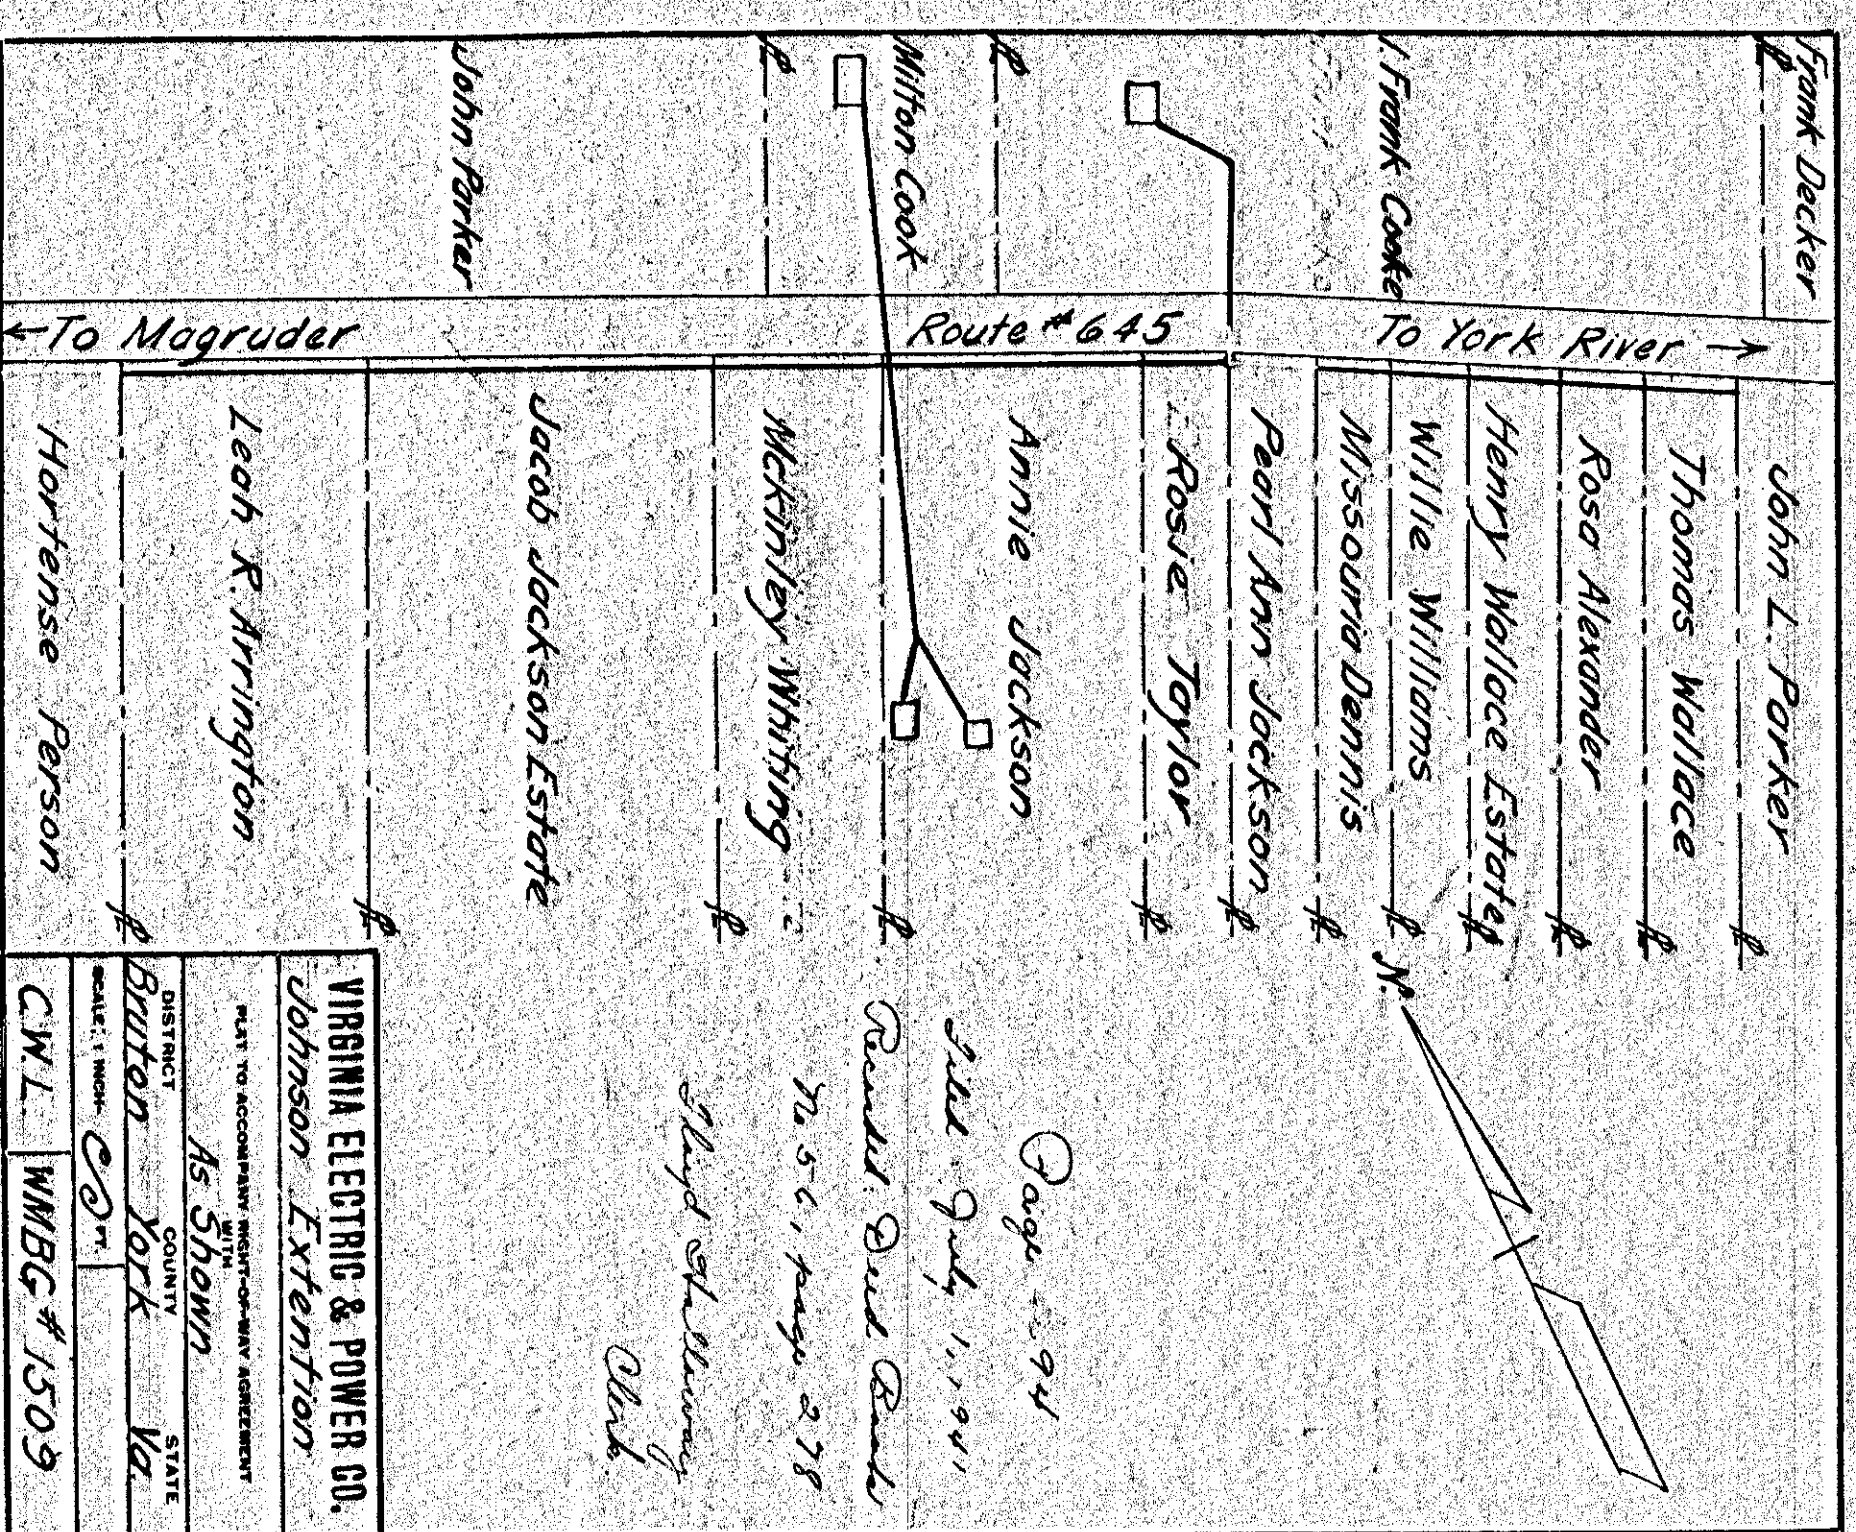 Frank Decker
J. Frank Cooke
Milton Cook
John Parker
← To Magruder
Route #645
To York River →
John L. Parker
Thomas Wallace
Rosa Alexander
Henry Wallace Estate
Willie Williams
Missouria Dennis
Pearl Ann Jackson
Rosie Taylor
Annie Jackson
McKinley Whiting
Jacob Jackson Estate
Leah R. Arrington
Hortense Person
N.
Paige - 94
Filed July 1, 1941
Recorded: Deed Book
No 56, page 278
Floyd Holloway
Clerk.
VIRGINIA ELECTRIC & POWER CO.
Johnson Extention
PLAT TO ACCOMPANY RIGHT-OF-WAY AGREEMENT
WITH
As Shown
DISTRICT COUNTY STATE
Bruton York Va.
SCALE: 1 INCH- FT.
C.W.L. WMBG #1509